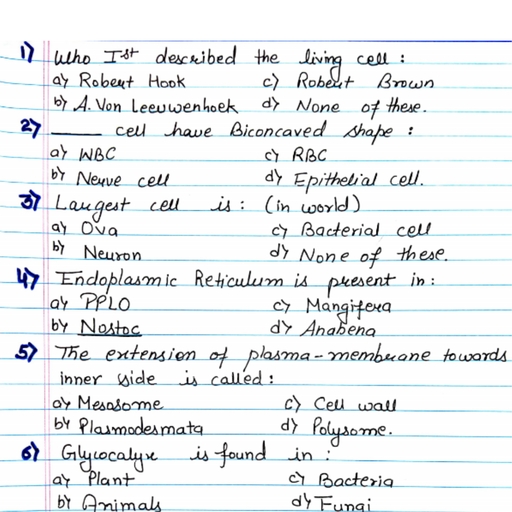 1) Who Ist described the living cell :
a) Robert Hook c) Robert Brown
b) A. Von Leeuwenhoek d) None of these.
2) _____ cell have Biconcaved shape :
a) WBC c) RBC
b) Nerve cell d) Epithelial cell.
3) Largest cell is : (in world)
a) Ova c) Bacterial cell
b) Neuron d) None of these.
4) Endoplasmic Reticulum is present in :
a) PPLO c) Mangifera
b) Nostoc d) Anabena
5) The extension of plasma-membrane towards
inner side is called :
a) Mesosome c) Cell wall
b) Plasmodesmata d) Polysome.
6) Glycocalyx is found in :
a) Plant c) Bacteria
b) Animals d) Fungi